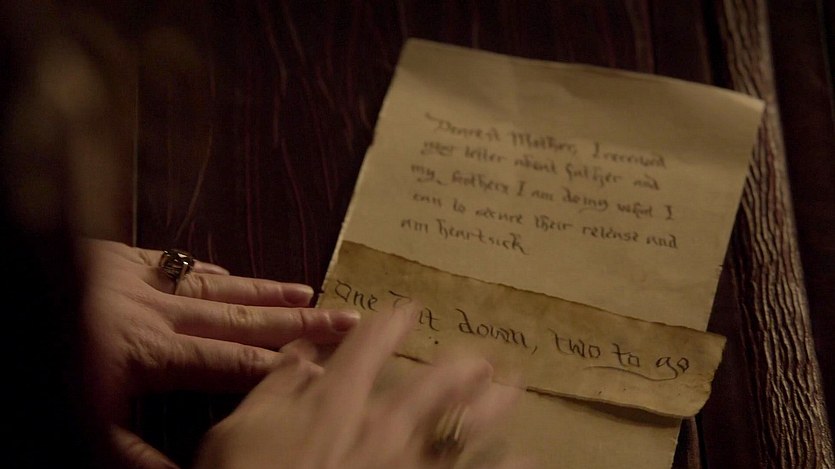 Dearest Mother, I received
your letter about father and
my brothers I am doing what I
can to secure their release and
am heartsick
One down, two to go